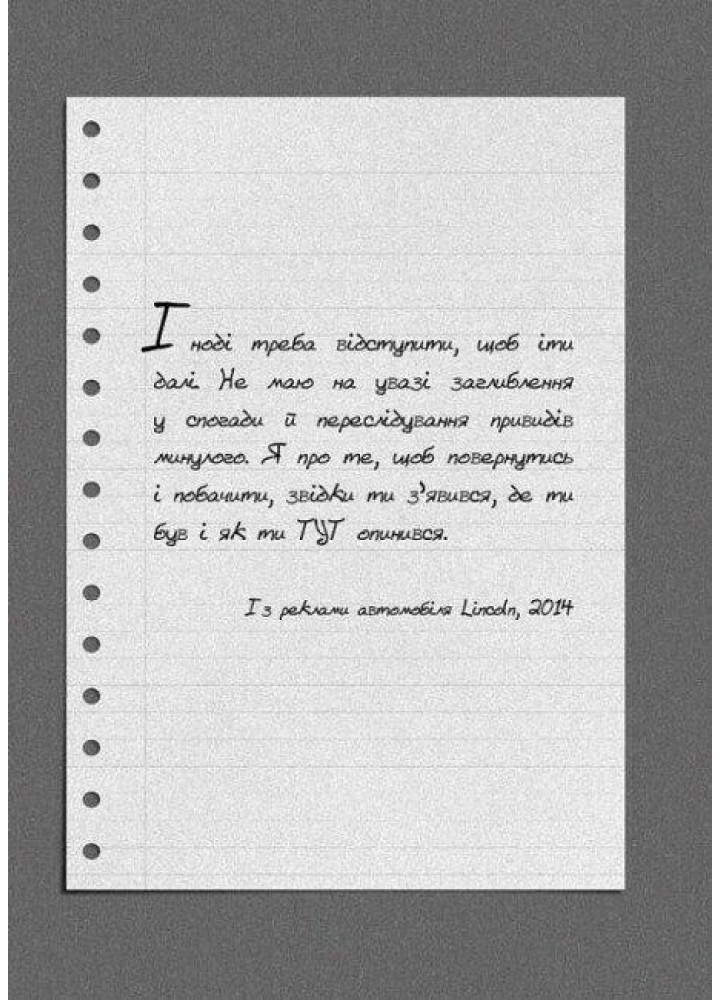 Іноді треба відступити, щоб іти
далі. Не маю на увазі заглиблення
у спогади й переслідування привидів
минулого. Я про те, щоб повернутись
і побачити, звідки ти з’явився, де ти
був і як ти ТУТ опинився.
Із реклами автомобіля Lincoln, 2014